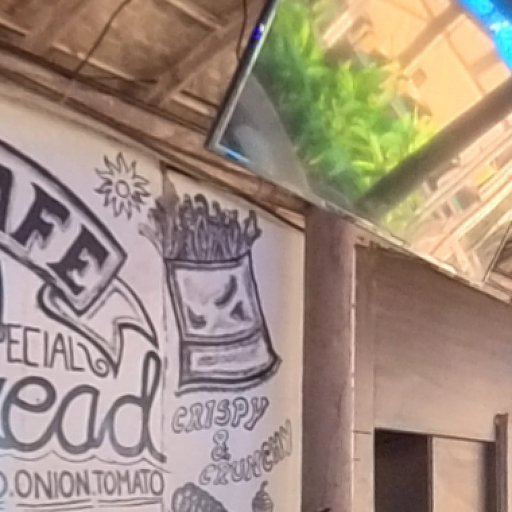 AFE
PECIAL
ead
O.ONION.TOMATO
CRISPY
&
CRUNCHY